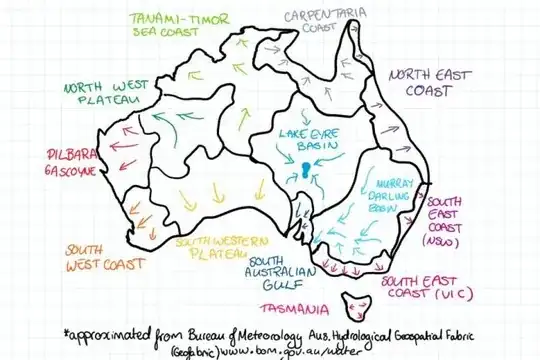 TANAMI-TIMOR
SEA COAST
CARPENTARIA
COAST
NORTH WEST
PLATEAU
NORTH EAST
COAST
LAKE EYRE
BASIN
PILBARA
GASCOYNE
MURRAY
DARLING
BASIN
SOUTH
EAST
COAST
(NSW)
SOUTH
WEST COAST
SOUTH WESTERN
PLATEAU
SOUTH
AUSTRALIAN
GULF
SOUTH EAST
COAST (VIC)
TASMANIA
*approximated from Bureau of Meteorology Aus. Hydrological Geospatial Fabric
(Geofabric) www.bom.gov.au/water